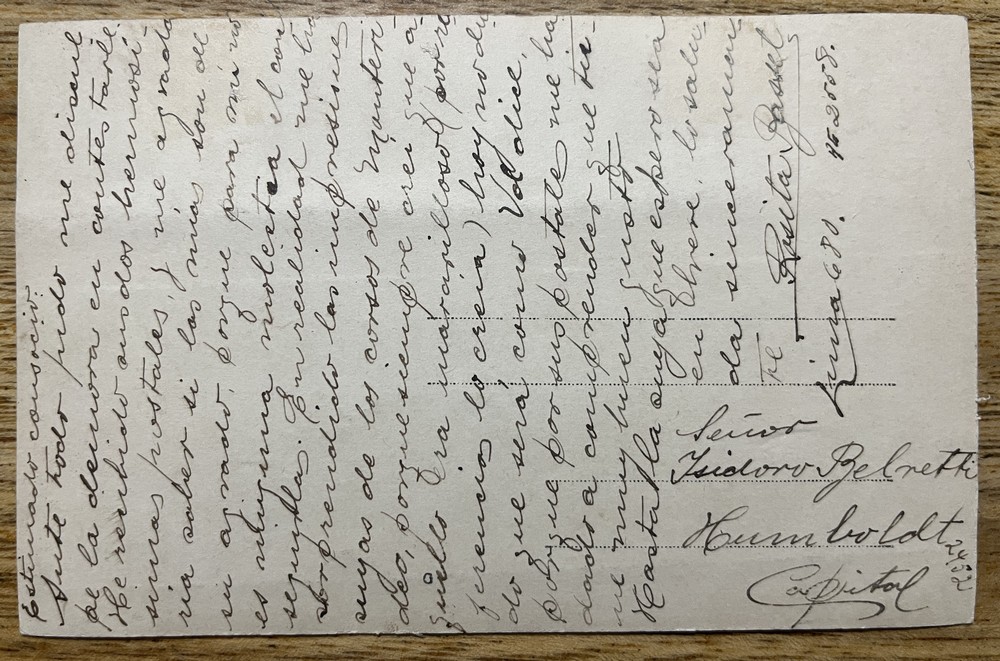 Estimado consocio:
Ante todo pido me discul
pe la demora en contestarle.
He recibido ambos hermosi-
simas postales, y me agrada
ria saber si las mías son de
su agrado, porque para mi no
es ninguna molestia el con
seguirla. En realidad me ha
sorprendido las impresiones
suyas de los corsos de Montevi
deo, porque siempre crei que a-
quello era maravilloso (por re
ferencias lo creia) hoy no du
do que será como Vd dice,
porque por sus postales me ha
dado a comprender que tie-
ne muy buen gusto.
Hasta la suya que espero sea
en breve, lo salu-
da sinceramen
te Rosita Passet
Lima 680. no 2008.
Señor
Isidoro Belretti
Humboldt 2432
Capital